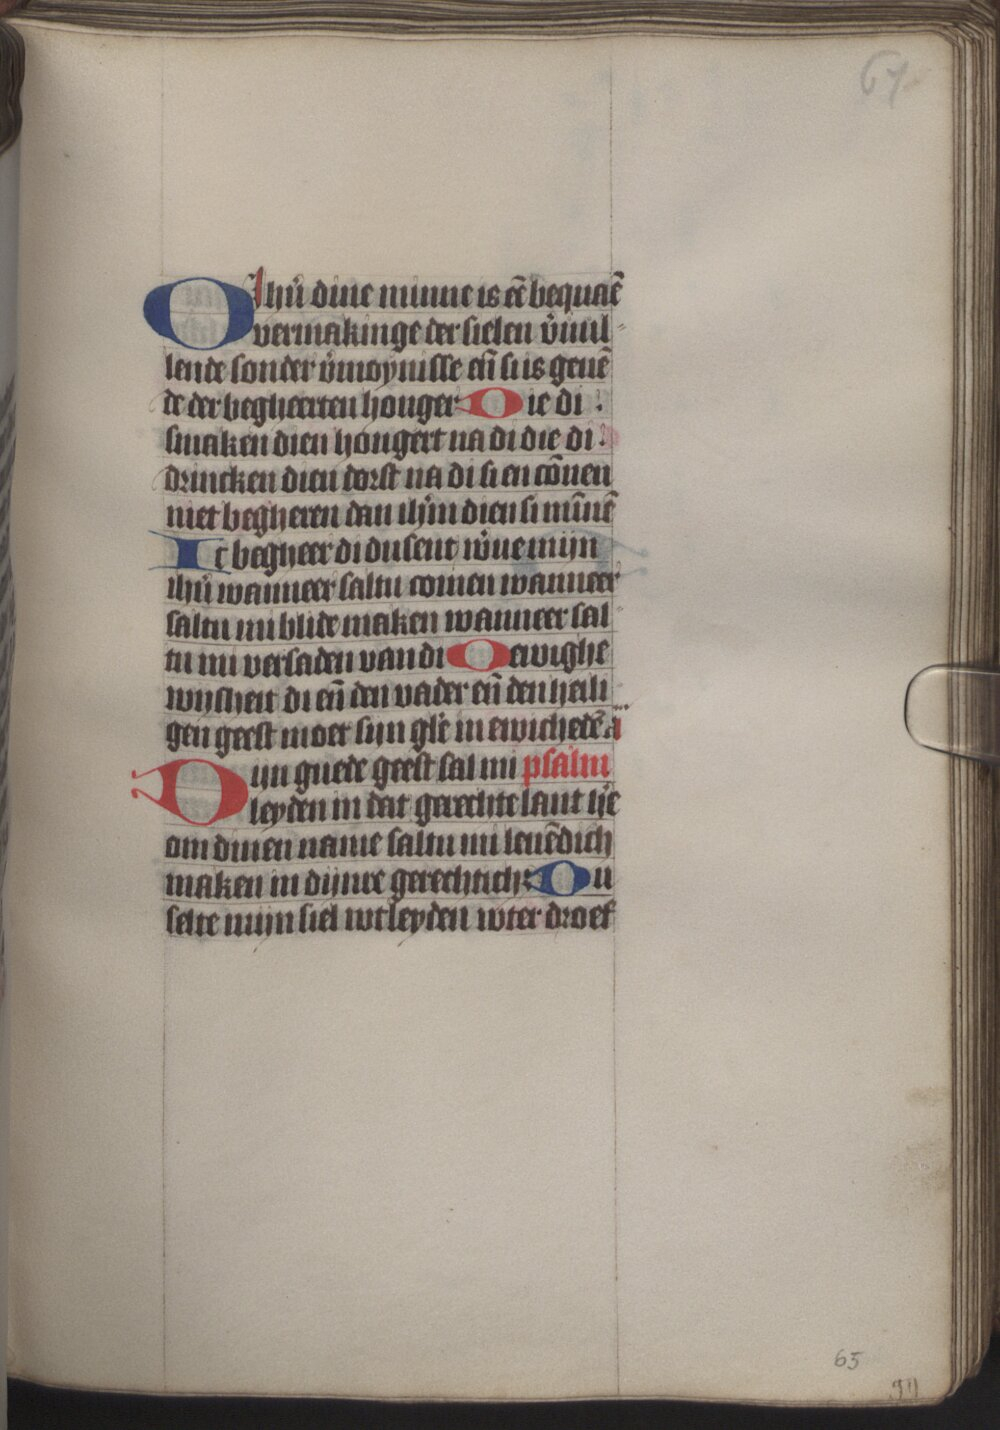 67
O Ihū dine minne is eē bequaē
vermakinge der sielen v̄uul
lende sonder v̄moynisse eñ si is geuē
de der begheerten honger Die di
smaken dien hongert na di die di
drincken dien dorst na di si en cōnen
niet begheren dan ihm̄ dien si mīnē
Ic begheer di dusent w̄ue mijn
ihū wanneer saltu comen wanneer
saltu mi blide maken wanneer sal
tu mi versaden van di O ewighe
wijsheit di eñ den vader eñ den heili
gen geest moet sijn glē in ewichedē a
Dijn guede geest sal mi psalm
leyden in dat gerechte lant hē
om dinen name saltu mi leuēdich
maken in dijnre gerechtich: Du
selte mijn siel wtleyden wter droef
65